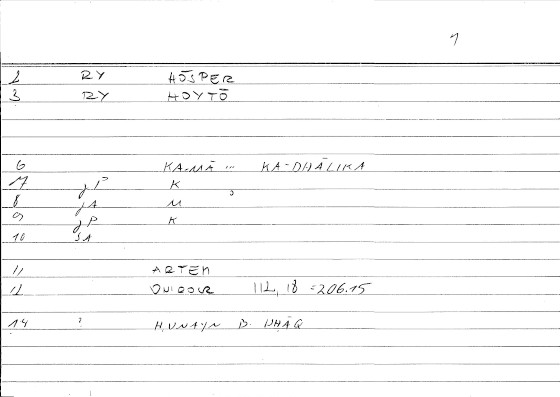 1
2 RY HŌSPER
3 RY HOYTŌ
6 KA-MĀ ... KA-DHĀLIKA
7 gP K
8 gA M
9 gP K
10 SA
11 ARTEM
12 112, 18 = 206.15
14 ḤUNAYN B.